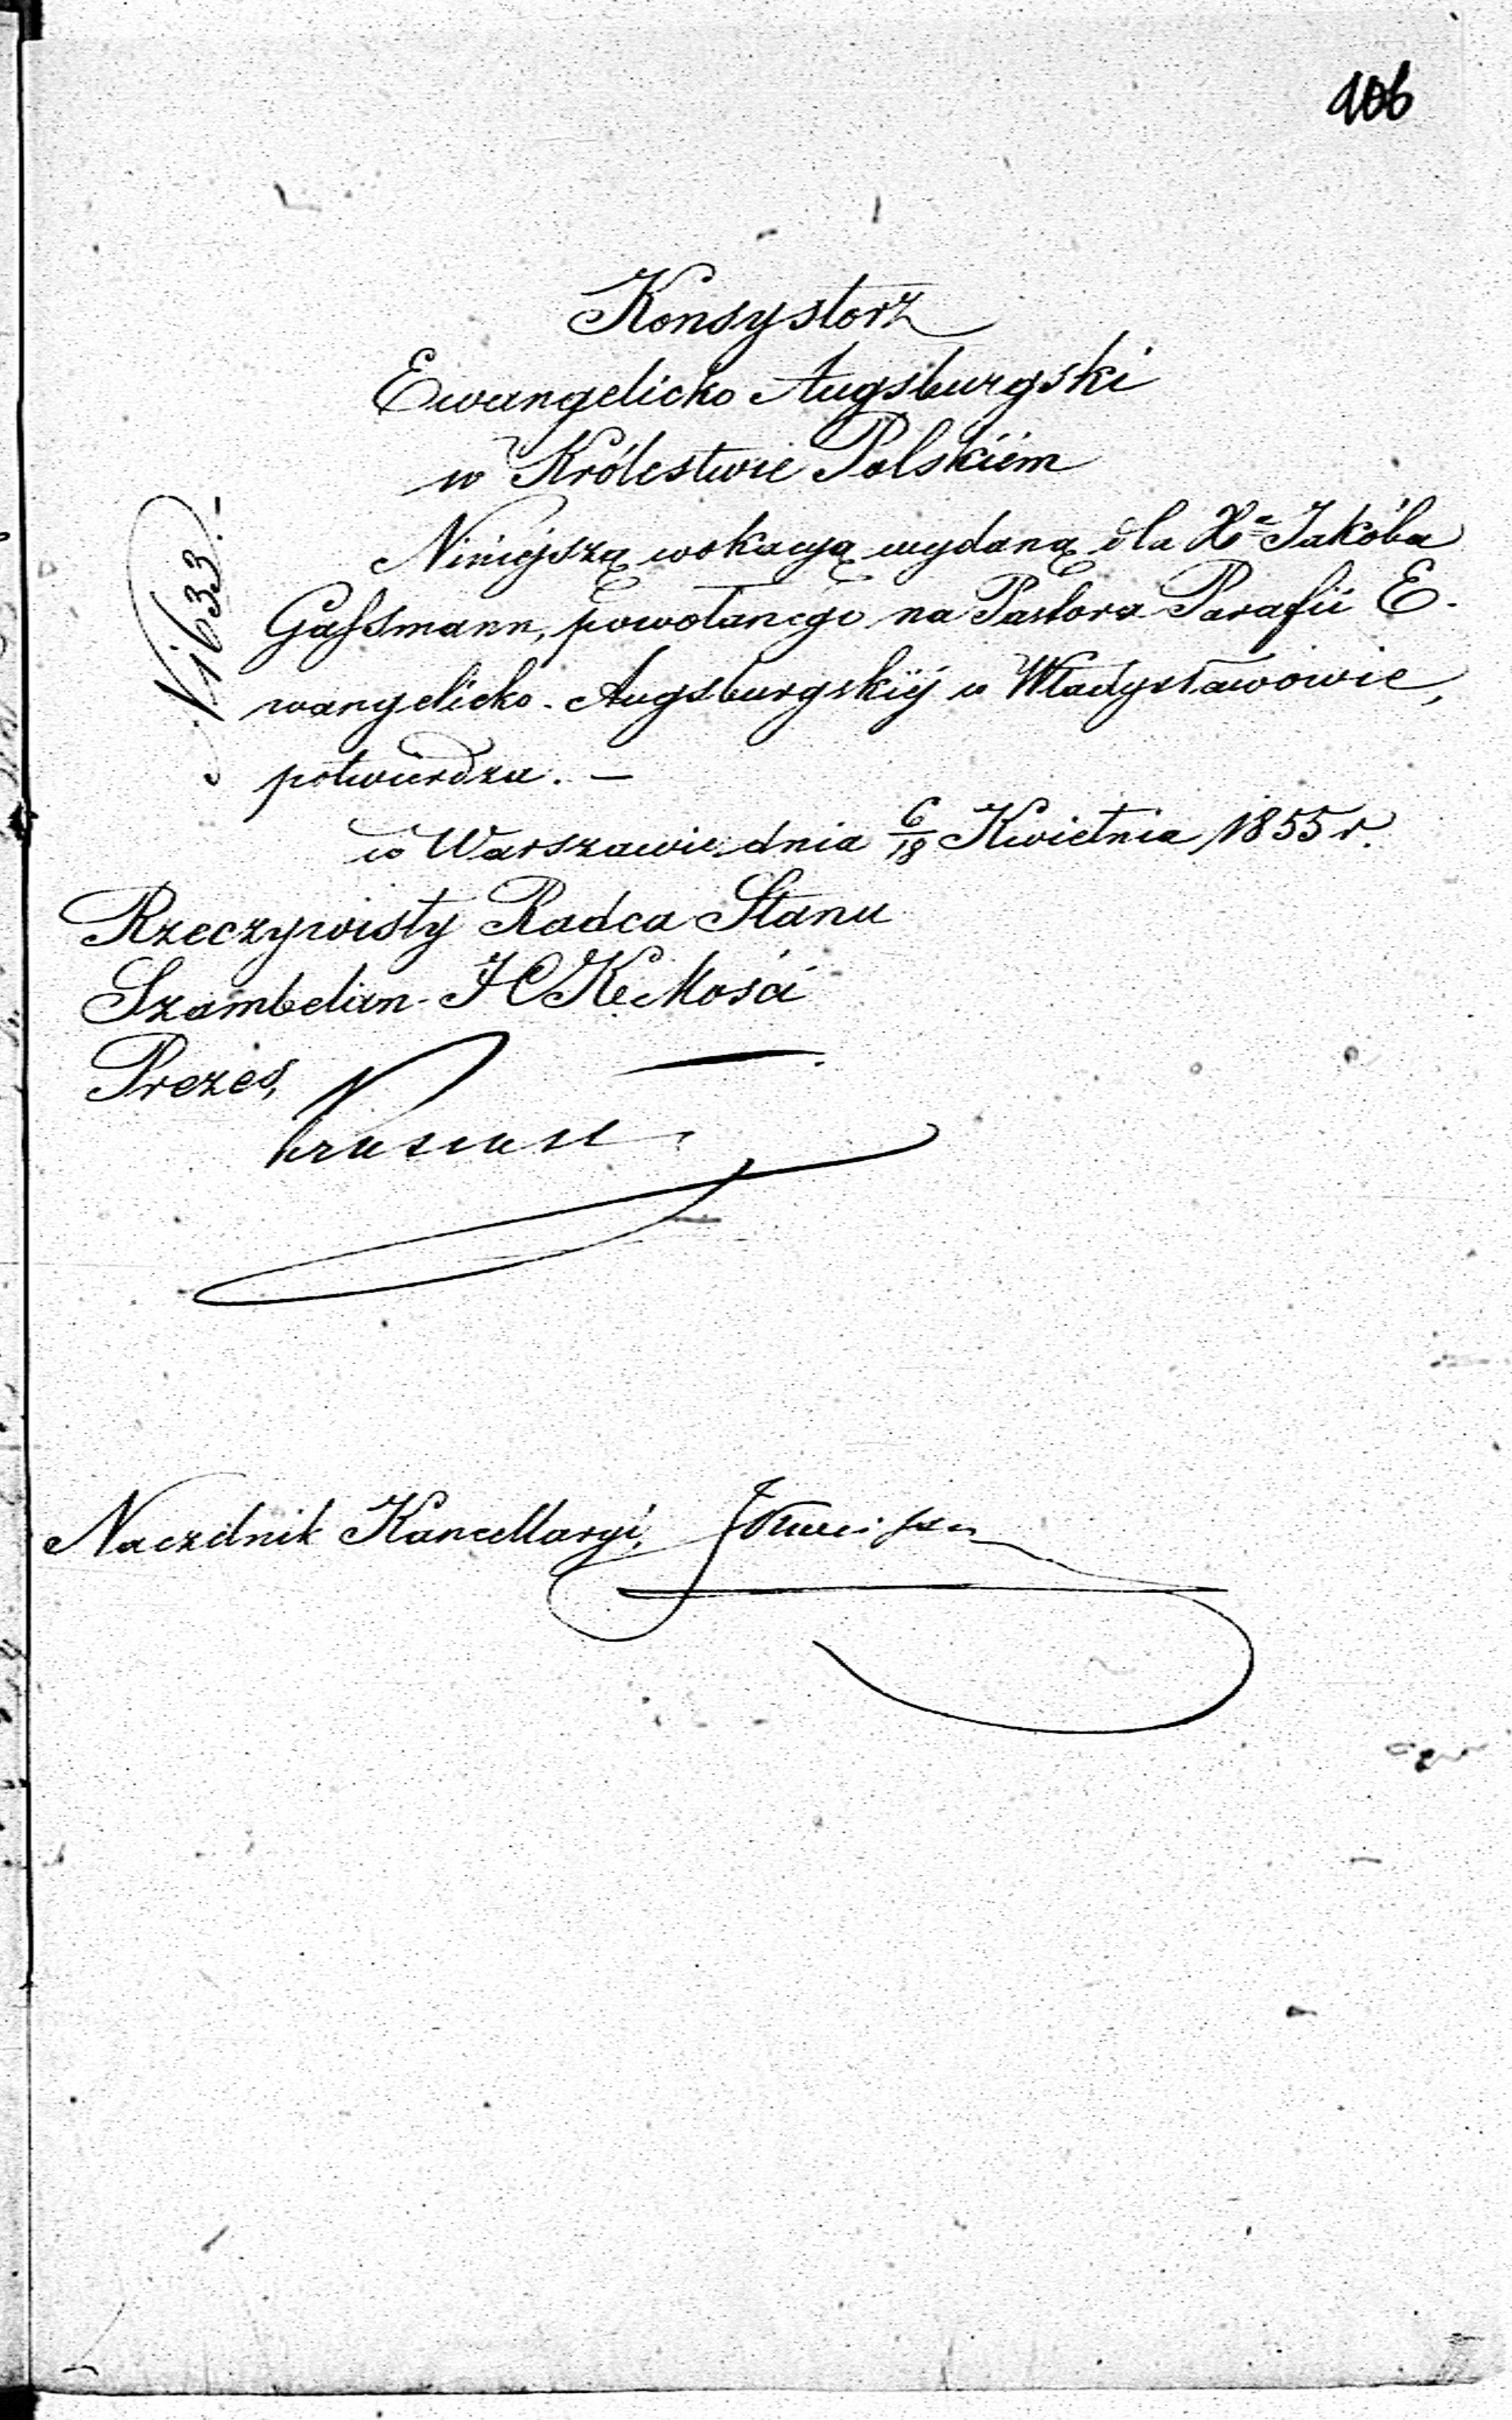 106
Konsystorz
Ewangelicko Augsburgski
w Królestwie Polskiém
N 1633.
Niniejszą wokacyą wydaną dla Xa Jakóba
Gaſsmann, powołanego na Pastora Parafii E-
wangelicko-Augsburgskiéj w Władysławowie,
potwierdza. —
w Warszawie dnia 6/18 Kwietnia 1855 r.
Rzeczywisty Radca Stanu
Szambelan J C K Mości
Prezes,
Naczelnik Kancellaryi,